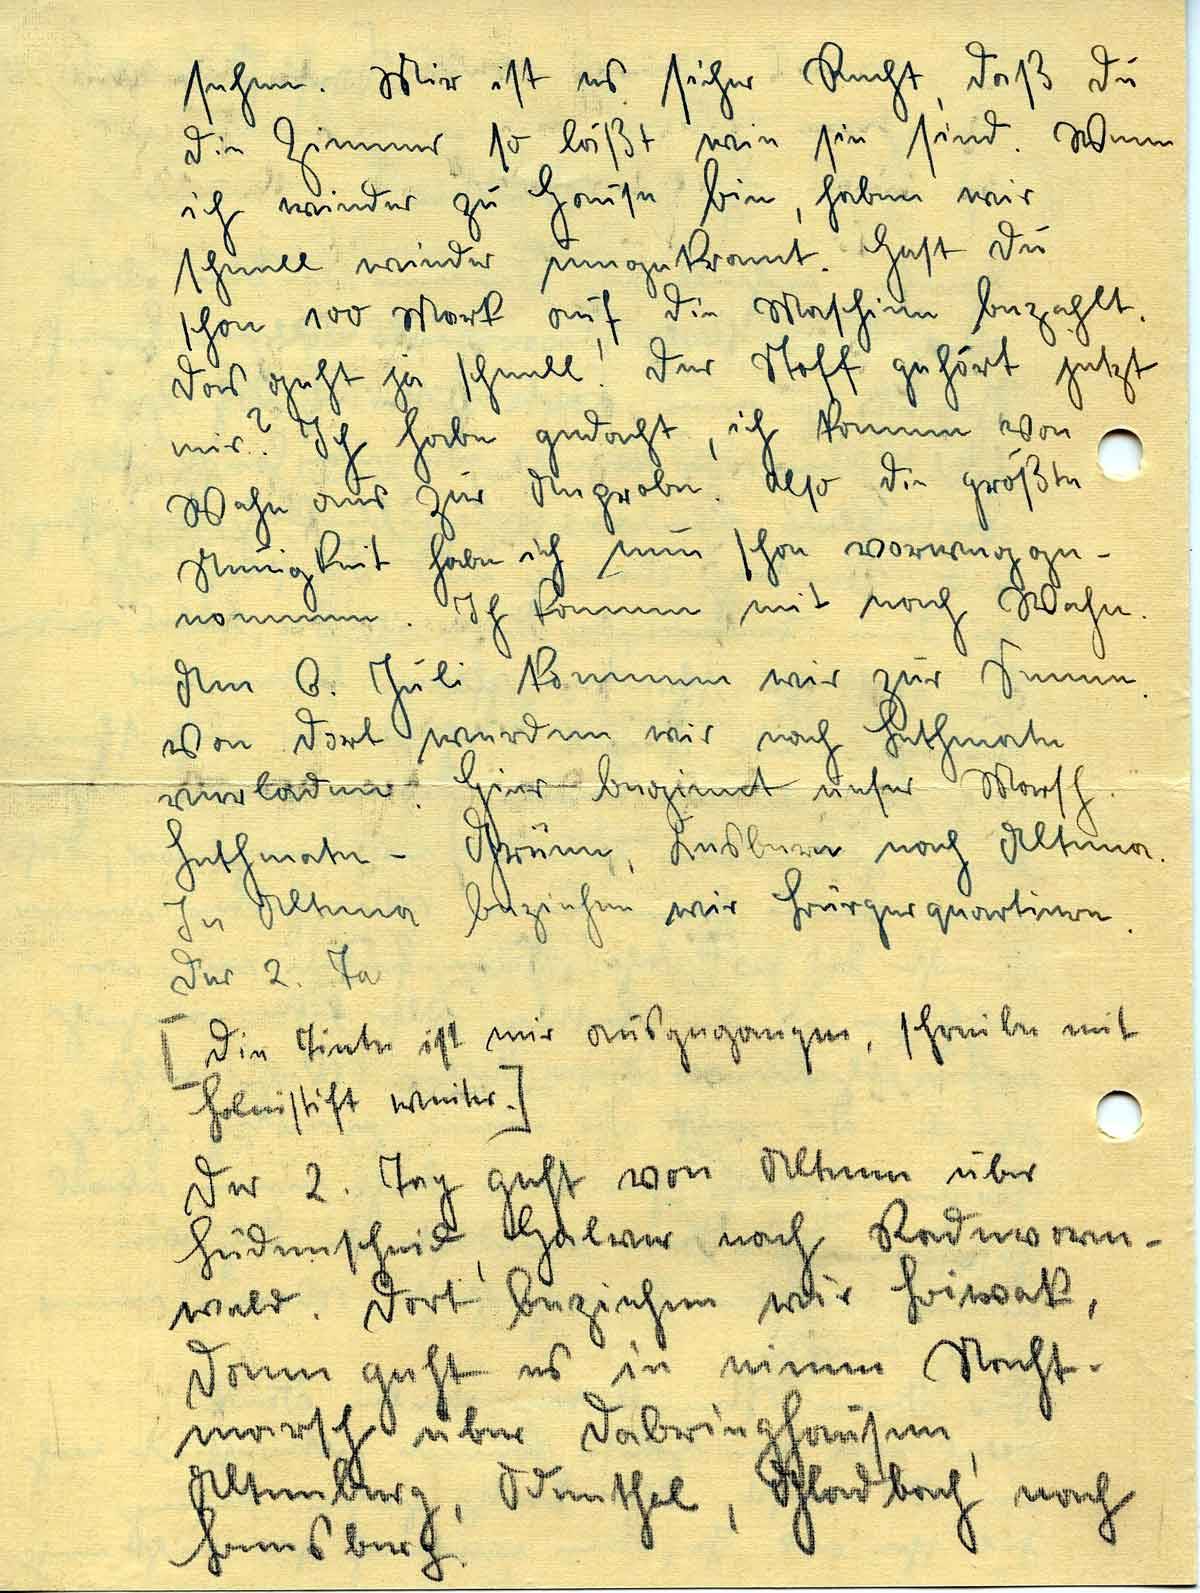 sehen. Mir ist es sicher Recht, daß Du
die Zimmer so läßt wie sie sind. Wenn
ich wieder zu Hause bin, haben wir
schnell wieder umgekramt. Hast Du
schon 100 Mark auf die Maschine bezahlt.
Das geht ja schnell! Der Stoff gehört jetzt
mir? Ich habe gedacht, ich komme von
Wahn aus zur Anprobe. Also die größte
Neuigkeit habe ich nun schon vorwegge-
nommen. Ich komme mit nach Wahn.
Am 6. Juli kommen wir zur Senne.
Von dort werden wir nach Lethmate
verladen. Hier beginnt unser Marsch.
Lethmate - Grüne, nach Altena.
In Altena beziehen wir Bürgerquartiere.
Der 2. Ta
[Die Tinte ist mir ausgegangen, schreibe mit
Bleistift weiter.]
Der 2. Tag geht von Altena über
Lüdenscheid, Halver nach Radevorm-
wald. Dort beziehen wir Biwak,
dann geht es in einem Nacht-
marsch über Dabringhausen,
Altenberg, Odenthal, Gladbach nach
Bensberg.